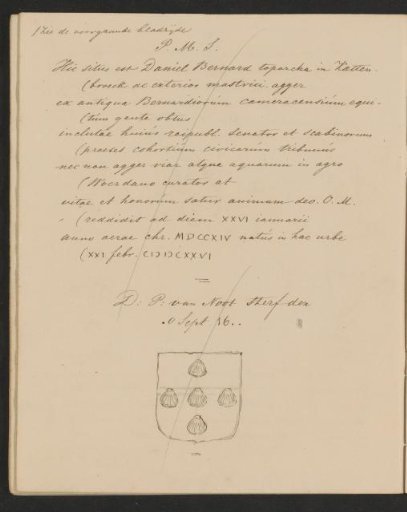 (Zie de voorgaande bladzyde
P. M. S.
Hic situs est Daniel Bernard toparcha in Catten
(broeck ac exterior mastvici agger
ex antiqua Bernardiorum cameracensium eque
(trium gente obtus
inclutae huius reipubl. senator et scabinorum
(praeses cohortium civicarum tribunus
nec non agger viar atque aquarum in agro
(Woerdano curator at
vitae et honorum satur animam deo. O. M.
(reddidit ad diem XXVI ianuarii
anno aerae chr. MDCCXIV natus in hac urbe
(XXI febr. CIƆIƆCXXVI
D: P: van Noot sterf den
Sept 16..